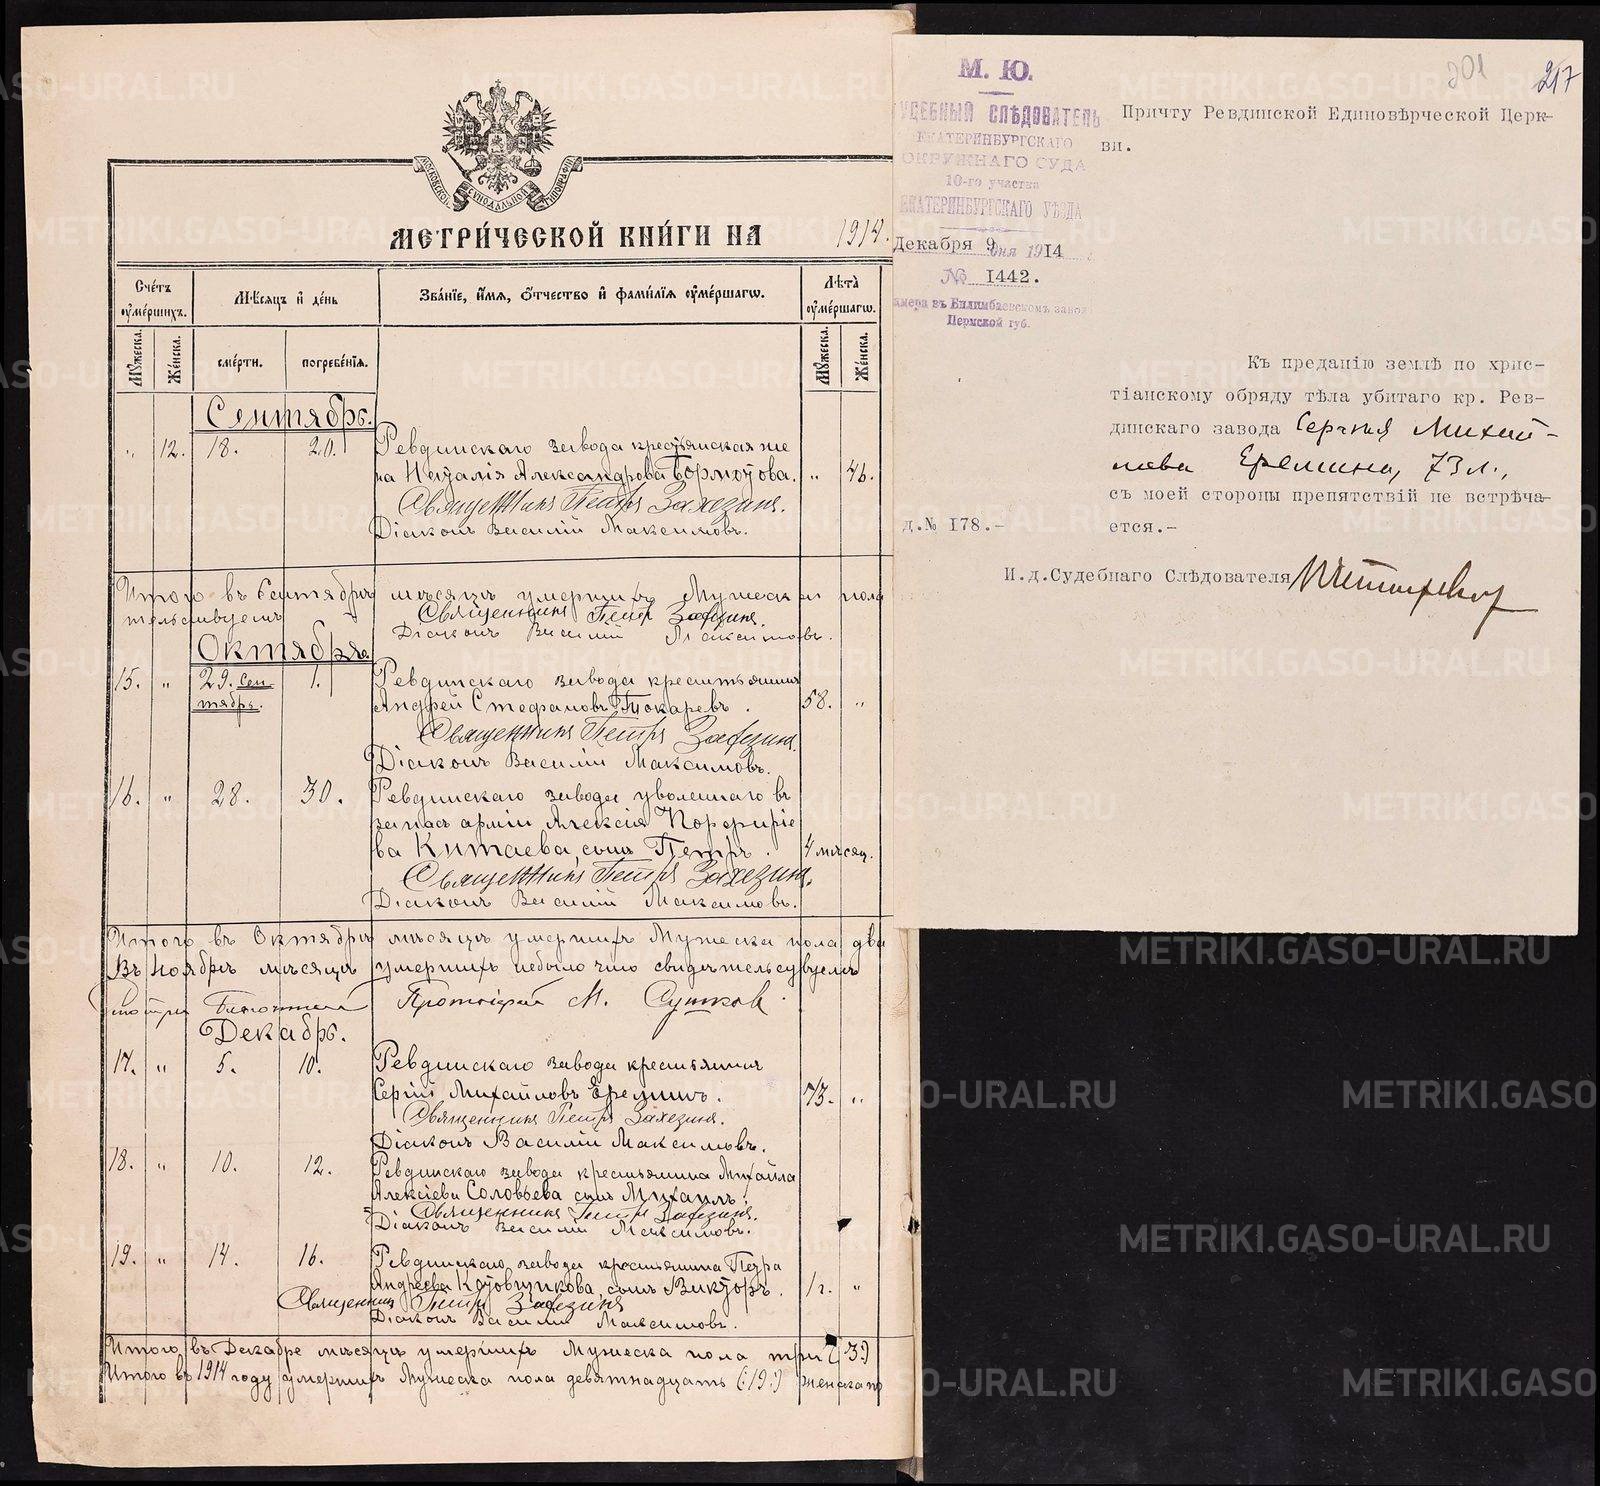 МОСКОВСКОЙ СѴНОДАЛЬНОЙ ТИПОГРАФІИ
МЕТРИ́ЧЕСКОЙ КНИ́ГИ НА 1914.
Сче́тъ ᲂуме́ршихъ.
Мѣ́сяцъ и де́нь
Зва́нїе, и́мя, ѻ́тчество и фами́лїя ᲂуме́ршагѡ.
Лѣ́та ᲂуме́ршагѡ.
Мꙋ́жеска.
Же́нска.
сме́рти.
погребе́нїя.
Мꙋ́жеска.
Же́нска.
Сентябрь.
„ 12. 18. 20. Ревдинскаго завода крестьянская же
на Наталія Александрова Бормотова. „ 46.
Священникъ Петръ Захезинъ.
Діаконъ Василій Максимовъ.
Итого въ Сентябрѣ мѣсяцѣ умершихъ Мужеска пола
Священникъ Петръ Захезинъ.
Діаконъ Василій Максимовъ.
Октябрь
15. „ 29. Сен- 1. Ревдинскаго завода крестьянинъ
тябрь. Андрей Стефановъ Токаревъ. 58. „
Священникъ Петръ Захезинъ.
Діаконъ Василій Максимовъ.
16. „ 28. 30. Ревдинскаго завода уволеннаго въ
запасъ арміи Алексія Порфиріе
ва Китаева, сынъ Петръ. 4 мѣсяц.
Священникъ Петръ Захезинъ.
Діаконъ Василій Максимовъ.
Итого въ Октябрѣ мѣсяцѣ умершихъ Мужеска пола два
Въ Ноябрѣ мѣсяцѣ умершихъ небыло что свидѣтельсвуемъ
Протоіерей М.
Декабрь.
17. „ 5. 10. Ревдинскаго завода крестьянинъ
Сергій Михайловъ Ереминъ. 73. „
Священникъ Петръ Захезинъ.
Діаконъ Василій Максимовъ.
18. „ 10. 12. Ревдинскаго завода крестьянина Михаила
Алексіева Соловьева сынъ Михаилъ.
Священникъ Петръ Захезинъ.
Діаконъ Василій Максимовъ.
19. „ 14. 16. Ревдинскаго завода крестьянина Петра
Андреева Котовщикова, сынъ Викторъ. 1 г. „
Священникъ Петръ Захезинъ
Діаконъ Василій Максимовъ.
Итого въ Декабре мѣсяцѣ умершихъ Мужеска пола три (3:)
Итого въ 1914 году умершихъ Мужеска пола девятнадцать (:19:) женска
М. Ю.
СУДЕБНЫЙ СЛѢДОВАТЕЛЬ
ЕКАТЕРИНБУРГСКАГО
ОКРУЖНАГО СУДА
10-го участка
ЕКАТЕРИНБУРГСКАГО УѢЗДА
Декабря 9 дня 1914
№ 1442.
Камера въ Билимбаевскомъ заводѣ
Пермской губ.
201
217
Причту Ревдинской Единовѣрческой Церк-
ви.
Къ преданію землѣ по хрис-
тіанскому обряду тѣла убитаго кр. Рев-
динскаго завода Сергѣя Михай-
лова Еремина, 73 л.,
съ моей стороны препятствій не встрѣча-
ется.-
д.№ 178.-
И.д.Судебнаго Слѣдователя
METRIKI.GASO-URAL.RU